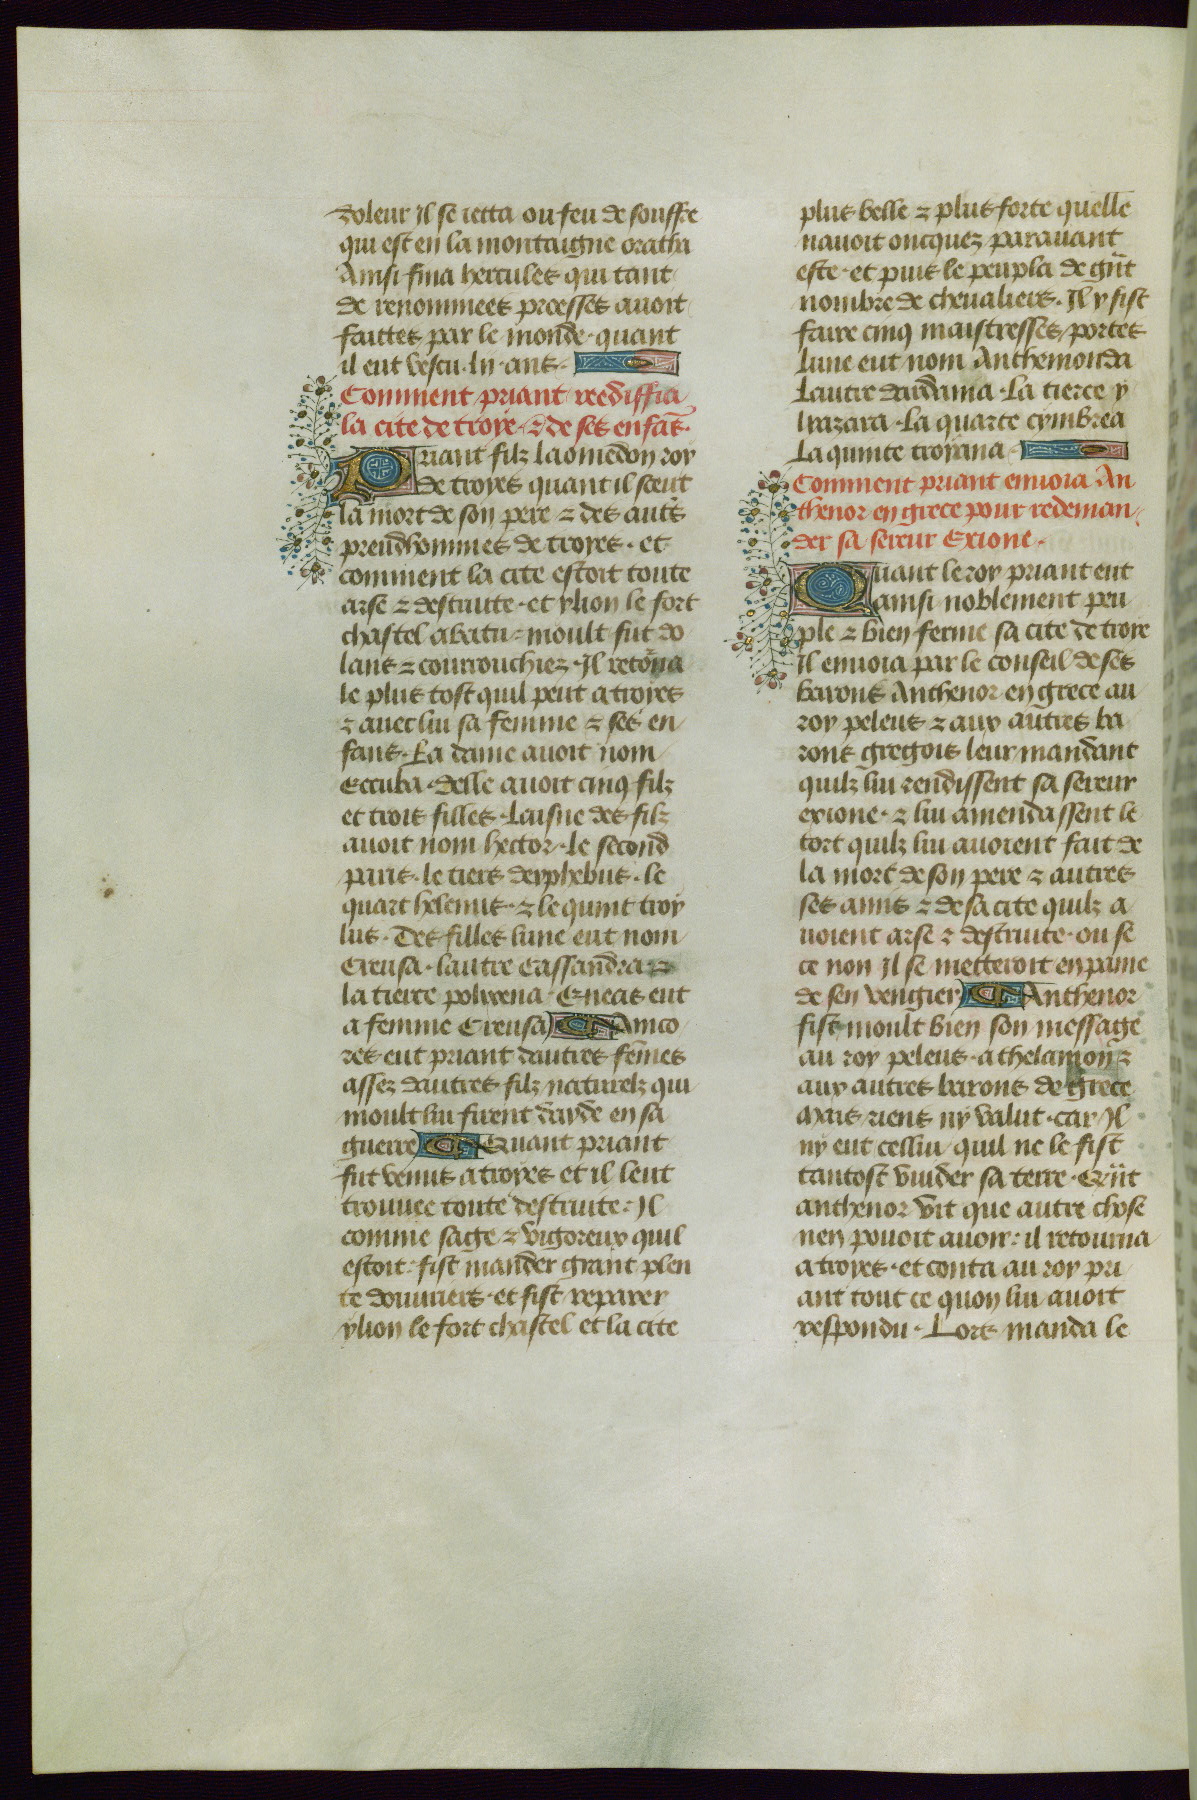 doleur Il se ietta ou feu de souffre
qui est en la montaigne oratha
Ainsi fina hercules qui tant
de renommees proesses auoit
faittes par le monde · quant
il eut vescu · lij · ans ·
Comment priant reediffia
la cite de troye · & de ses enfās ·
Priant filz laomedon roy
de troyes quant il sceut
la mort de son pere & des aut's
preudhommes de troyes · et
comment la cite estoit toute
arse & destruite · et ylion le fort
chastel abatu : moult fut do
lans & courrouchiez · Il reto'na
le plus tost quil peut a troyes
& auec lui sa femme & ses en
fans · La dame auoit nom
Eccuba · Delle auoit cinq filz
et trois filles · Laisne des filz
auoit nom hector · le second
paris · le tiers deyphebus · le
quart helenus · & le quint troy
lus · Des filles lune eut nom
Creusa · lautre Cassandra &
la tierce polixena · Eneas eut
a femme Creusa ¶ Ainco
res eut priant dautres fēmes
assez dautres filz naturelz qui
moult lui firent dayde en sa
guerre ¶ Quant priant
fut venus a troyes et il leut
trouuee toute destruite : Il
comme sage & vigoreux quil
estoit : fist mander grant plen
te douuriers · et fist reparer
ylion le fort chastel et la cite
plus belle & plus forte quelle
nauoit oncquez parauant
este · et puis le peupla de gūt
nombre de cheualiers · Il y fist
faire cinq maistresses portes
Lune eut nom Anthemonda
Lautre dardama · La tierce y
lrazara · La quarte cymbrea
La quinte troyana ·
Comment priant enuoia An
thenor en grece pour redeman
der sa sereur Exione ·
Quant le roy priant eut
ainsi noblement peu
ple & bien ferme sa cite de troye
Il enuoia par le conseil de ses
barons Anthenor en grece au
roy peleus & aux autres ba
rons gregois leur mandant
quilz lui rendissent sa sereur
exione · & lui amendassent le
tort quilz lui auoient fait de
la mort de son pere & autres
ses amis & de sa cite quilz a
uoient arse & destruite · ou se
ce non Il se metteroit en paine
de sen vengier ¶ Anthenor
fist moult bien son message
au roy peleus · a thelamon &
aux autres barons de grece
Mais riens ny valut · car Il
ny eut cellui quil ne le fist
tantost vuider sa terre · Q̄nt
anthenor vit que autre chose
nen pouoit auoir : il retourna
a troyes · et conta au roy pri
ant tout ce quon lui auoit
respondu · Lors manda le